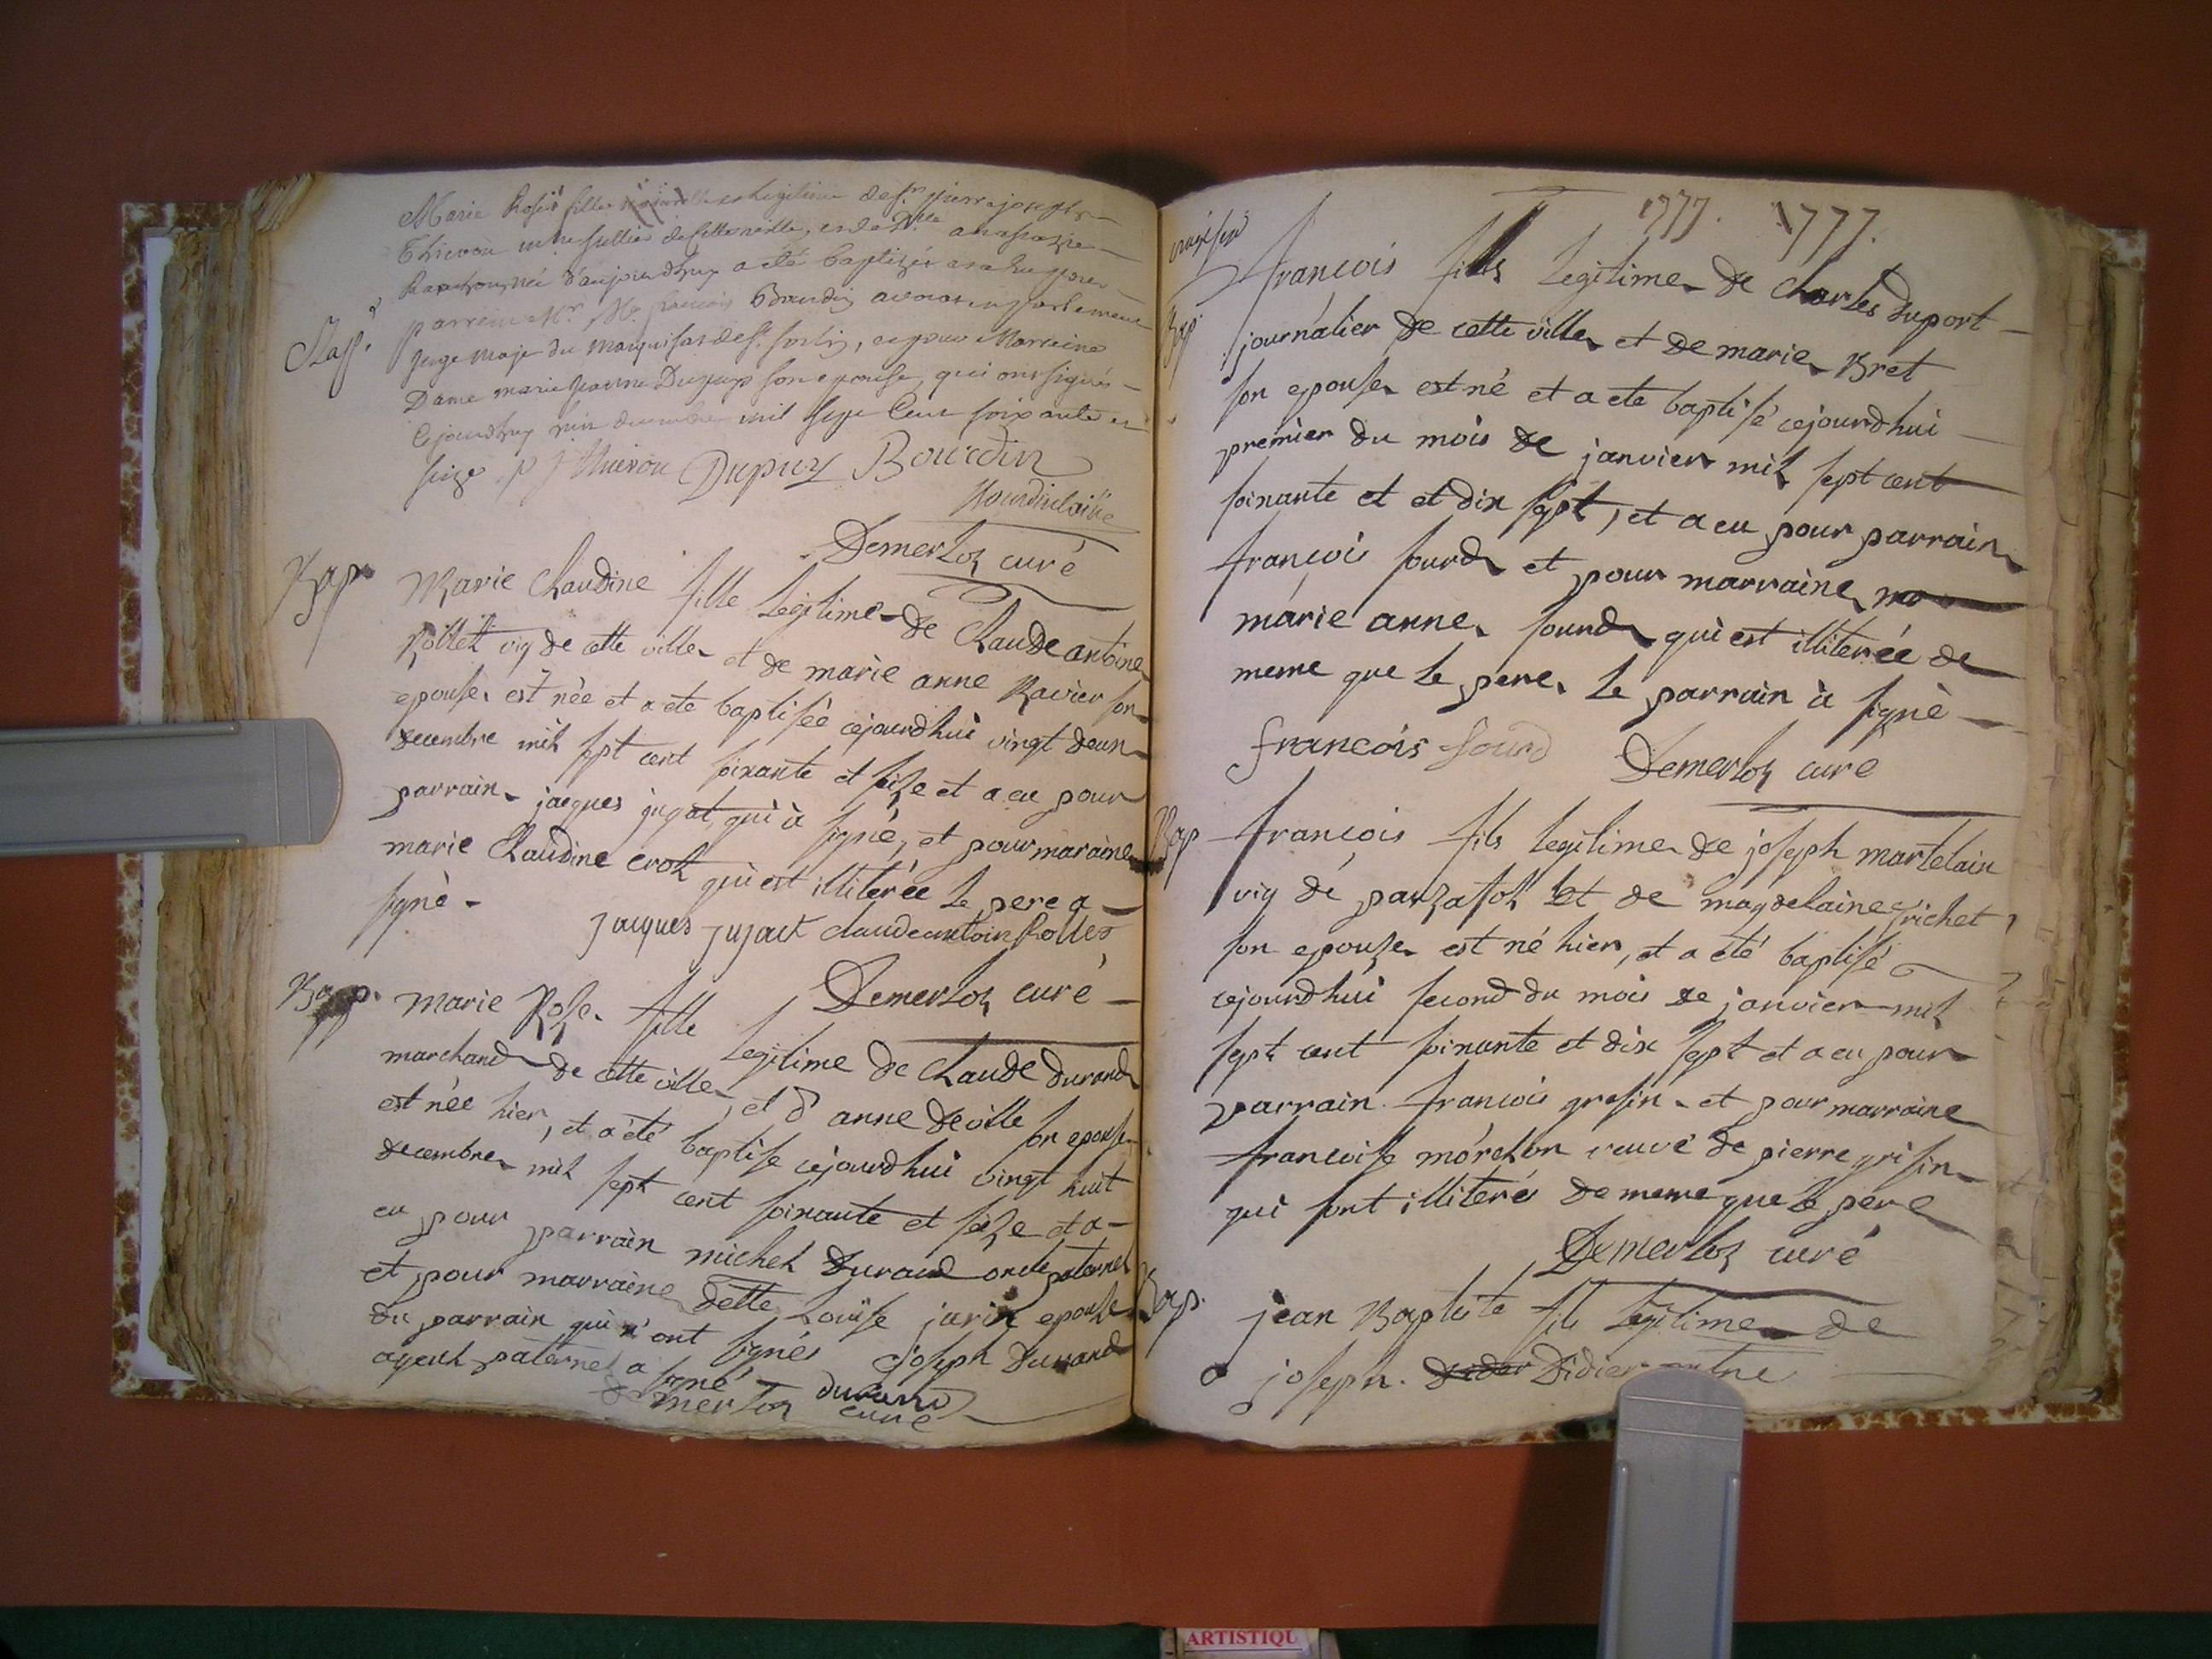 Marie fille Legitime de sr pierre joseph
a été baptizée a eu pour
parrein Mr Me françois Bourdin avocat en parlement
juge maje du marquisat de st , et pour Marreine
Dame marie jeanne Dupuys son epouse, qui ont signés
Cejourdhuy decembre mil sept Cent soixante et
seize p j thievon Dupuy Bourdin
Demerloz curé
Bap.
Marie Claudine fille Legitime de Claude antoine
Rollet vig de cette ville et de marie anne Ravier son
epouse est née et a eté baptisée cejourdhui vingt deux
decembre mil sept cent soixante et seize et a eu pour
parrain jacques jugat, qui a signé, et pour maraine
marie Claudine crot qui est illiterée le pere a
signé.
Jacques jujact claudeantoin Rollet
Demerloz curé
Bap.
marie Rose fille Legitime de Claude durand
marchand de cette ville, et d'anne deville son epouse
est née hier, et a été baptise cejourdhui vingt huit
decembre mil sept cent soixante et seize et a
eu pour parrain michel Durand oncle paternel
et pour marraine delle Louise jarin epouse
du parrain qui n'ont signés joseph Durand
ayeul paternel a signé durand
demerloz curé
1777. 1777.
Bap.
francois fils Legitime de Charles duport
journalier de cette ville et de marie Bret
son epouse est né et a eté baptisé cejourdhui
premier du mois de janvier mil sept cent
soixante et et dix sept, et a eu pour parrain
françois sourd et pour marraine ma
marie anne sourd qui est illiterée de
meme que le pere le parrain à signé
francois Sourd Demerloz curé
Bap
francois fils legitime de joseph martelain
vig de et de magdelaine richet
son epouse est né hier, et a été baptisé
cejourdhui second du mois de janvier mil
sept cent soixante et dix sept et a eu pour
parrain francois grisin et pour marraine
francoise morelon veuve de pierre grisin
qui sont illiterés de meme que le pere
Demerloz curé
Bap.
jean Baptiste fils legitime de
joseph. Didier
ARTISTIQU